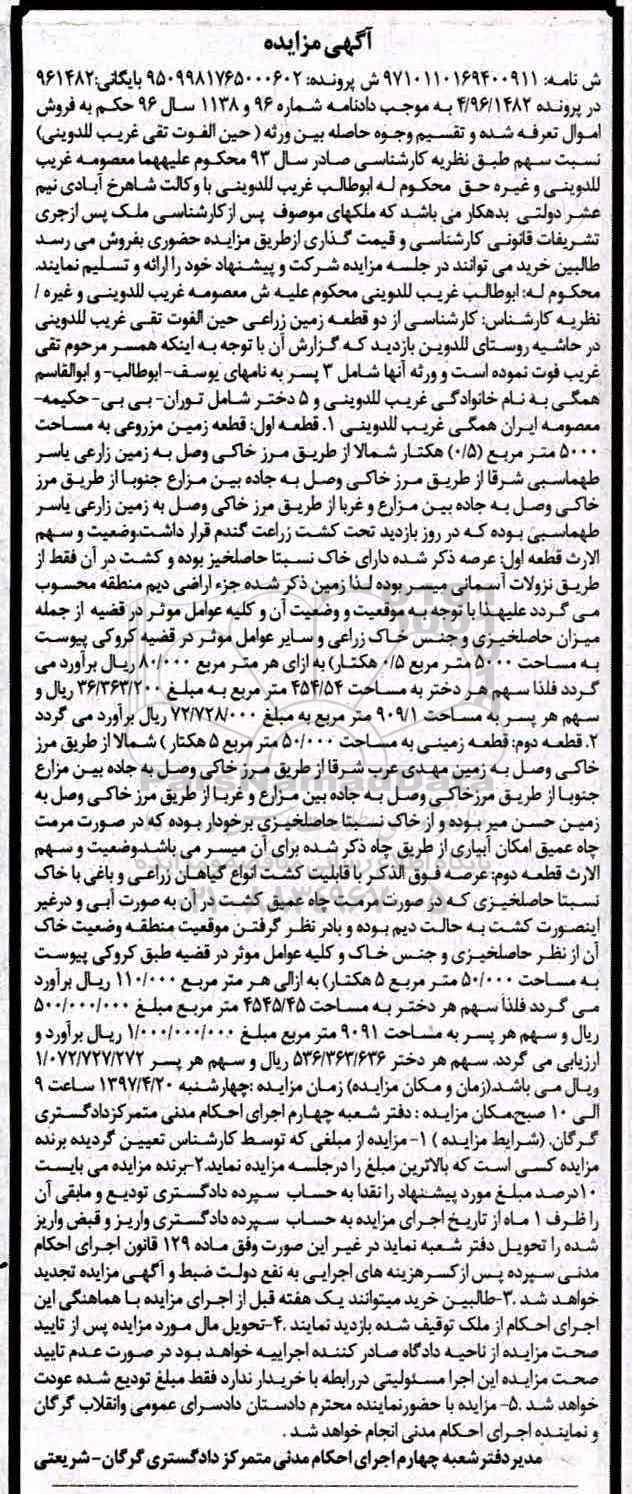 آگهی مزایده
ش نامه: ۹۷۱۰۱۱۰۱۶۹۴۰۰۹۱۱ ش پرونده: ۹۵۰۹۹۸۱۷۶۵۰۰۰۶۰۲ بایگانی:۹۶۱۴۸۲
در پرونده ۴/۹۶/۱۴۸۲ به موجب دادنامه شماره ۹۶ و ۱۱۳۸ سال ۹۶ حکم به فروش
اموال تعرفه شده و تقسیم وجوه حاصله بین ورثه ( حین الفوت تقی غریب للدوینی)
نسبت سهم طبق نظریه کارشناسی صادر سال ۹۳ محکوم علیههما معصومه غریب
للدوینی و غیره حق محکوم له ابوطالب غریب للدوینی با وکالت شاهرخ آبادی نیم
عشر دولتی بدهکار می باشد که ملکهای موصوف پس ازکارشناسی ملک پس ازجری
تشریفات قانونی کارشناسی و قیمت گذاری ازطریق مزایده حضوری بفروش می رسد
طالبین خرید می توانند در جلسه مزایده شرکت و پیشنهاد خود را ارائه و تسلیم نمایند.
محکوم له: ابوطالب غریب للدوینی محکوم علیه ش معصومه غریب للدوینی و غیره /
نظریه کارشناس: کارشناسی از دو قطعه زمین زراعی حین الفوت تقی غریب للدوینی
در حاشیه روستای للدوین بازدید که گزارش آن با توجه به اینکه همسر مرحوم تقی
غریب فوت نموده است و ورثه آنها شامل ۳ پسر به نامهای یوسف- ابوطالب- و ابوالقاسم
همگی به نام خانوادگی غریب للدوینی و ۵ دختر شامل توران- بی بی- حکیمه-
معصومه ایران همگی غریب للدوینی ۱. قطعه اول: قطعه زمین مزروعی به مساحت
۵۰۰۰ متر مربع (۰/۵) هکتار شمالا از طریق مرز خاکی وصل به زمین زراعی یاسر
طهماسبی شرقا از طریق مرز خاکی وصل به جاده بین مزارع جنوبا از طریق مرز
خاکی وصل به جاده بین مزارع و غربا از طریق مرز خاکی وصل به زمین زارعی یاسر
طهماسبی بوده که در روز بازدید تحت کشت زراعت گندم قرار داشت.وضعیت و سهم
الارث قطعه اول: عرصه ذکر شده دارای خاک نسبتا حاصلخیز بوده و کشت در آن فقط از
طریق نزولات آسمانی میسر بوده لذا زمین ذکر شده جزء اراضی دیم منطقه محسوب
می گردد علیهذا با توجه به موقعیت و وضعیت آن و کلیه عوامل موثر در قضیه از جمله
میزان حاصلخیزی و جنس خاک زراعی و سایر عوامل موثر در قضیه کروکی پیوست
به مساحت ۵۰۰۰ متر مربع ۰/۵ هکتار) به ازای هر متر مربع ۸۰/۰۰۰ ریال برآورد می
گردد فلذا سهم هر دختر به مساحت ۴۵۴/۵۴ متر مربع به مبلغ ۳۶/۳۶۳/۲۰۰ ریال و
سهم هر پسر به مساحت ۹۰۹/۱ متر مربع به مبلغ ۷۲/۷۲۸/۰۰۰ ریال برآورد می گردد
۲. قطعه دوم: قطعه زمینی به مساحت ۵۰/۰۰۰ متر مربع ۵ هکتار ) شمالا از طریق مرز
خاکی وصل به زمین مهدی عرب شرقا از طریق مرز خاکی وصل به جاده بین مزارع
جنوبا از طریق مرزخاکی وصل به جاده بین مزارع و غربا از طریق مرز خاکی وصل به
زمین حسن میر بوده و از خاک نسبتا حاصلخیزی برخودار بوده که در صورت مرمت
چاه عمیق امکان آبیاری از طریق چاه ذکر شده برای آن میسر می باشدوضعیت و سهم
الارث قطعه دوم: عرصه فوق الذکر با قابلیت کشت انواع گیاهان زراعی و باغی با خاک
نسبتا حاصلخیزی که در صورت مرمت چاه عمیق کشت در آن به صورت آبی و درغیر
اینصورت کشت به حالت دیم بوده و بادر نظر گرفتن موقعیت منطقه وضعیت خاک
آن از نظر حاصلخیزی و جنس خاک و کلیه عوامل موثر در قضیه طبق کروکی پیوست
به مساحت ۵۰/۰۰۰ متر مربع ۵ هکتار) به ازالی هر متر مربع ۱۱۰/۰۰۰ ریال برآورد
می گردد فلذا سهم هر دختر به مساحت ۴۵۴۵/۴۵ متر مربع مبلغ ۵۰۰/۰۰۰/۰۰۰
ریال و سهم هر پسر به مساحت ۹۰۹۱ متر مربع مبلغ ۱/۰۰۰/۰۰۰/۰۰۰ ریال برآورد و
ارزیابی می گردد. سهم هر دختر ۵۳۶/۳۶۳/۶۳۶ ریال و سهم هر پسر ۱/۰۷۲/۷۲۷/۲۷۲
ویال می باشد.(زمان و مکان مزایده) زمان مزایده :چهارشنبه ۱۳۹۷/۴/۲۰ ساعت ۹
الی ۱۰ صبح.مکان مزایده : دفتر شعبه چهارم اجرای احکام مدنی متمرکزدادگستری
گرگان. (شرایط مزایده ) ۱- مزایده از مبلغی که توسط کارشناس تعیین گردیده برنده
مزایده کسی است که بالاترین مبلغ را درجلسه مزایده نماید.۲-برنده مزایده می بایست
۱۰درصد مبلغ مورد پیشنهاد را نقدا به حساب سپرده دادگستری تودیع و مابقی آن
را ظرف ۱ ماه از تاریخ اجرای مزایده به حساب سپرده دادگستری واریز و قبض واریز
شده را تحویل دفتر شعبه نماید در غیر این صورت وفق ماده ۱۲۹ قانون اجرای احکام
مدنی سپرده پس ازکسرهزینه های اجرایی به نفع دولت ضبط و آگهی مزایده تجدید
خواهد شد .۳-طالبین خرید میتوانند یک هفته قبل از اجرای مزایده با هماهنگی این
اجرای احکام از ملک توقیف شده بازدید نمایند .۴-تحویل مال مورد مزایده پس از تایید
صحت مزایده از ناحیه دادگاه صادر کننده اجراییه خواهد بود در صورت عدم تایید
صحت مزایده این اجرا مسئولیتی دررابطه با خریدار ندارد فقط مبلغ تودیع شده عودت
خواهد شد .۵- مزایده با حضورنماینده محترم دادستان دادسرای عمومی وانقلاب گرگان
و نماینده اجرای احکام مدنی انجام خواهد شد .
مدیر دفتر شعبه چهارم اجرای احکام مدنی متمرکز دادگستری گرگان- شریعتی